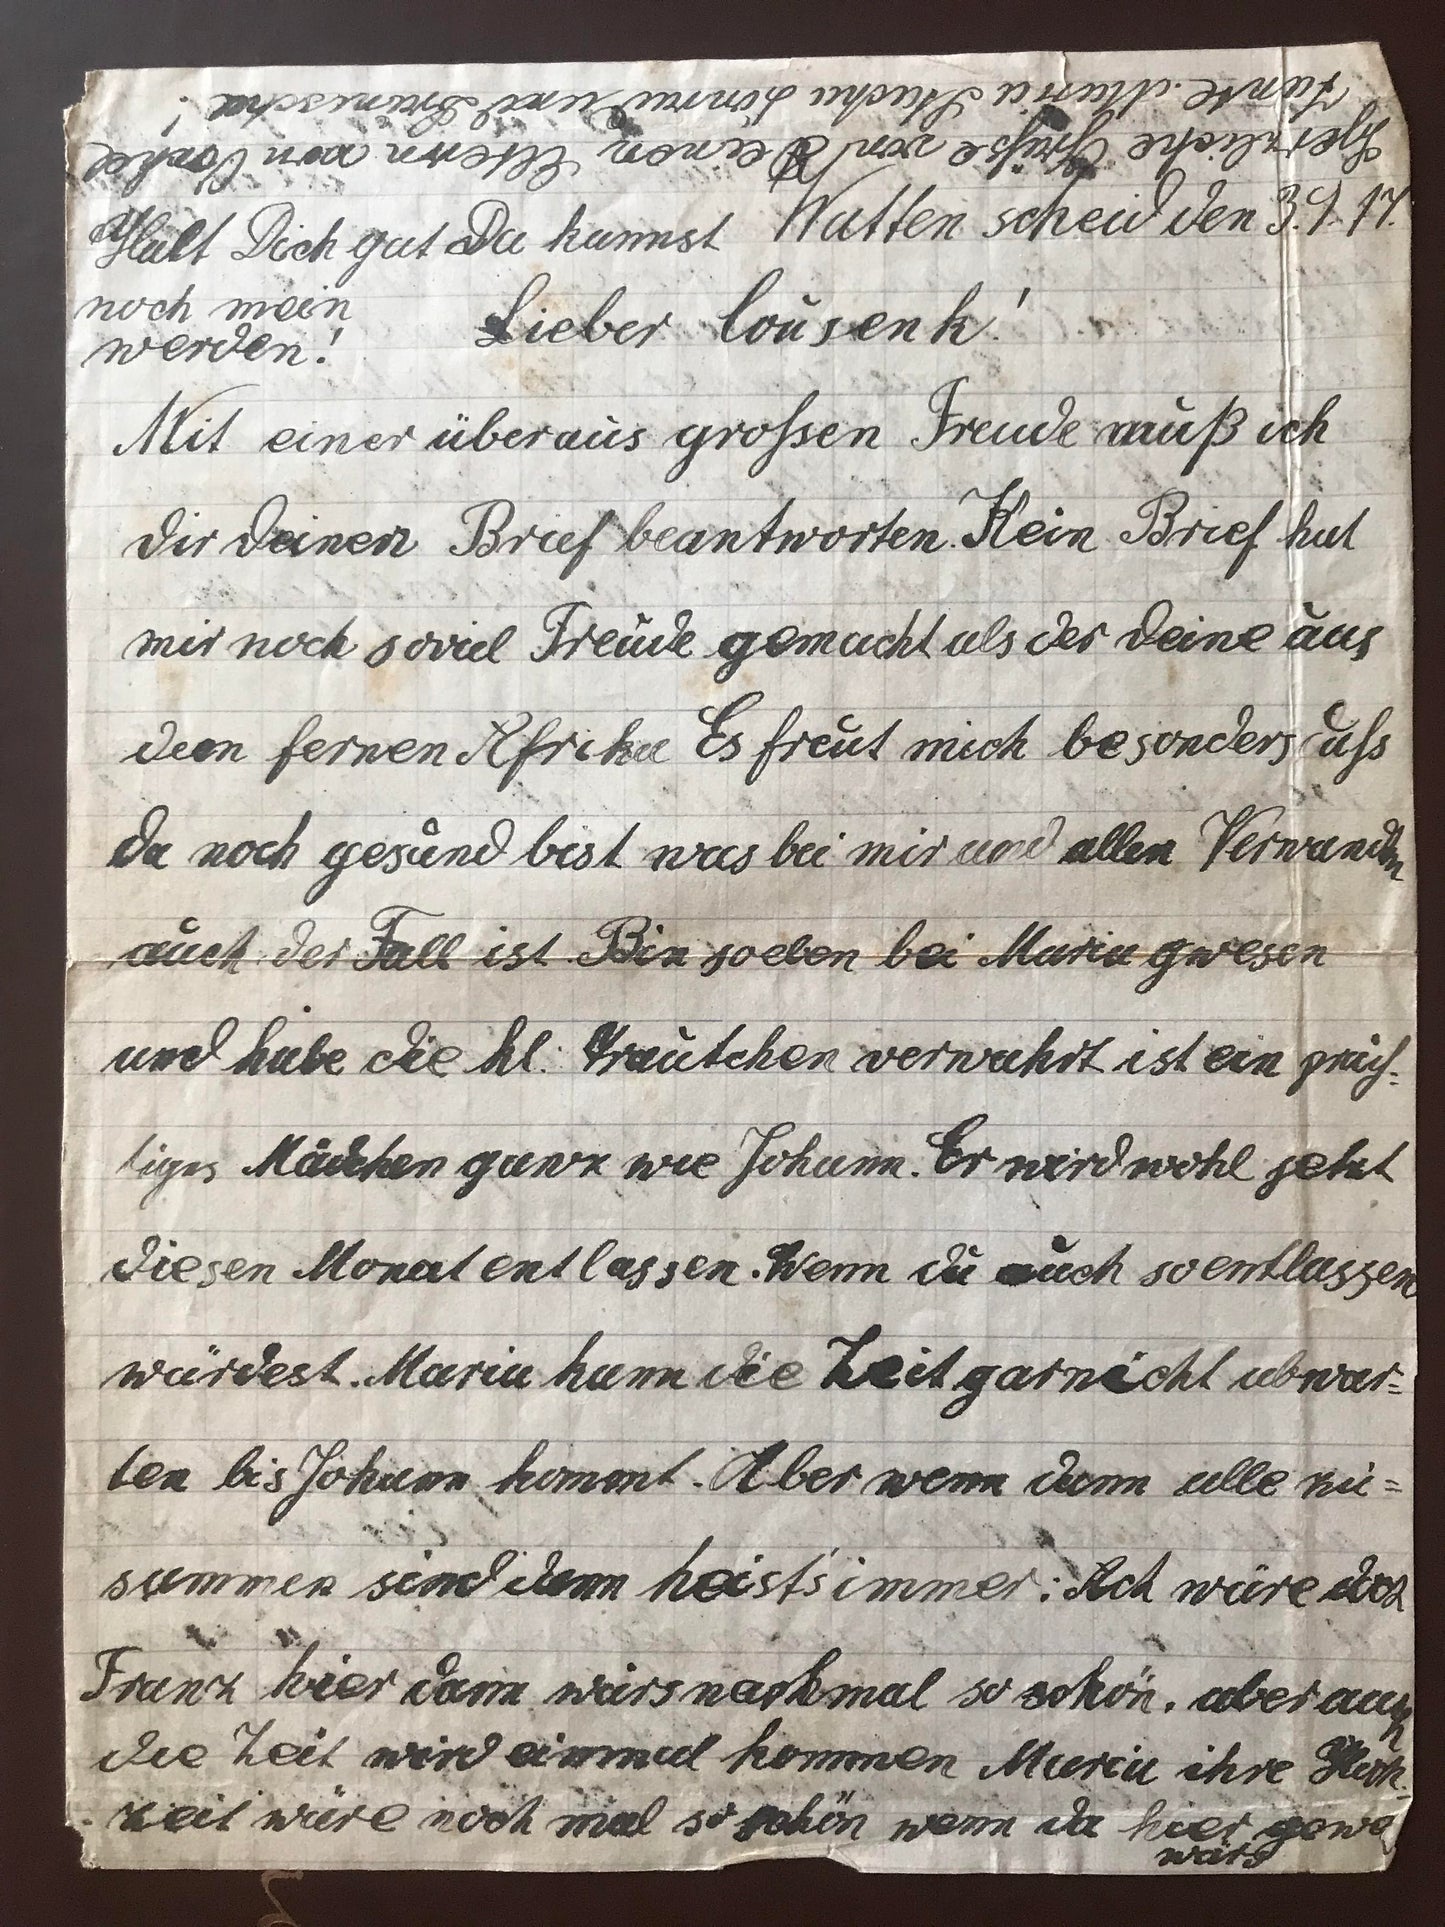 Herzliche Grüße von deinen Eltern von Onkel
Tante Maria Stucha Konrad und
Halt Dich gut Du kannst
noch mein
werden!
Wattenscheid den 3.9.17.
Lieber Cousenk!
Mit einer überaus grossen Freude muß ich
dir deinen Brief beantworten. Kein Brief hat
mir noch soviel Freude gemacht als der deine aus
dem fernen Afrika Es freut mich besonders dass
du noch gesund bist was bei mir und allen Verwandten
auch der Fall ist Bin soeben bei Maria gwesen
und habe die kl. Trautchen verwahrt ist ein präch-
tiges Mädchen ganz wie Johann. Er wird wohl jetzt
diesen Monat entlassen. Wenn du auch so entlassen
würdest. Maria kann die Zeit garnicht abwar=
ten bis Johann kommt. Aber wenn dann alle zu=
sammen sind dann heists immer: Ach wäre der
Franz hier dann wärs nochmal so schön. aber auch
die Zeit wird einmal kommen Maria ihre Hoch-
zeit wäre noch mal so schön wenn du hier gewe
wärs